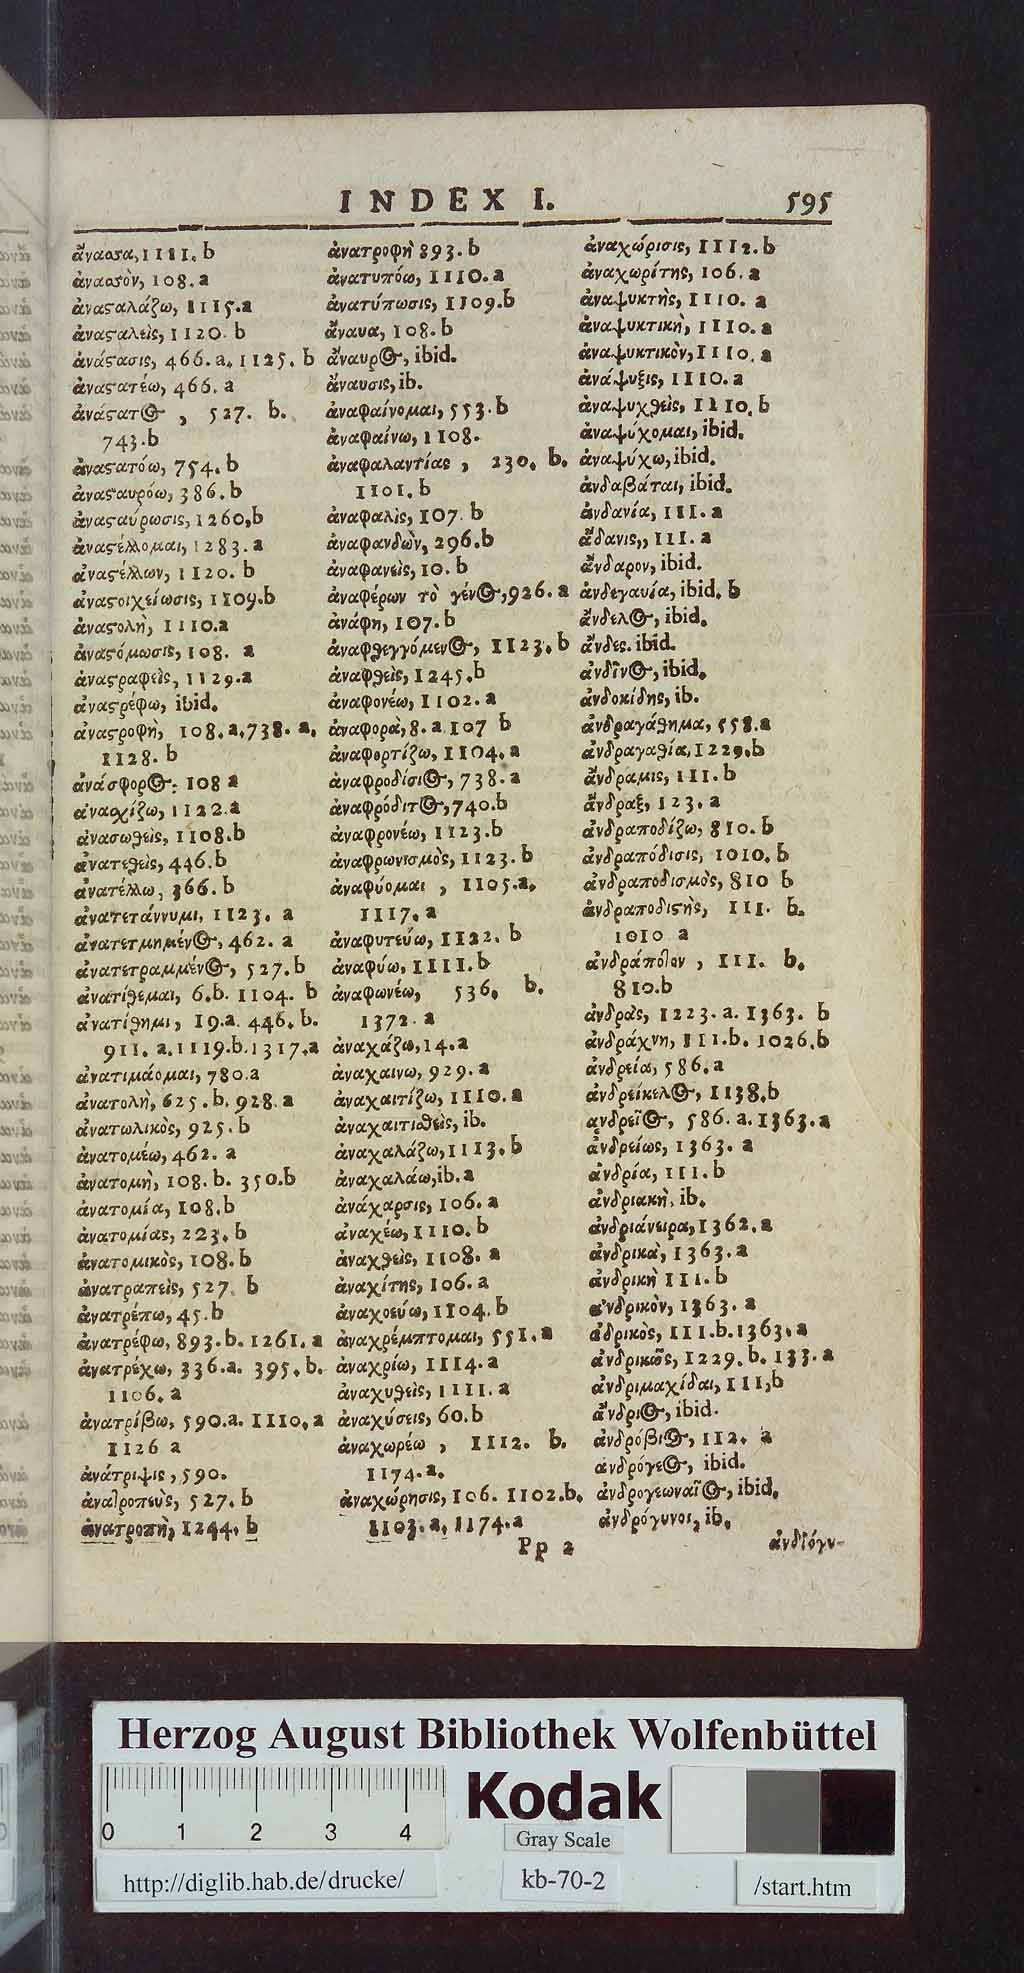 INDEX I. 595
ἄνασσα, 1111. b
ἀνασσὸν, 108. a
ἀναςαλάζω, 1115. a
ἀναςαλεὶς, 1120. b
ἀνάςασις, 466. a. 1125. b
ἀναςατέω, 466. a
ἀνάςατ, 527. b.
743. b
ἀναςατόω, 754. b
ἀναςαυρόω, 386. b
ἀναςαύρωσις, 1260, b
ἀναςέλλομαι, 1283. a
ἀναςέλλων, 1120. b
ἀναςοιχείωσις, 1109. b
ἀναςολὴ, 1110. a
ἀναςόμωσις, 108. a
ἀναςραφεὶς, 1129. a
ἀναςρέφω, ibid.
ἀναςροφὴ, 108. a, 738. a.
1128. b
ἀνάσφορος. 108 a
ἀναχίζω, 1122. a
ἀνασωθεὶς, 1108. b
ἀνατεθεὶς, 446. b
ἀνατέλλω, 366. b
ἀνατετάννυμι, 1123. a
ἀνατετμημένος, 462. a
ἀνατετραμμένος, 527. b
ἀνατίθεμαι, 6. b. 1104. b
ἀνατίθημι, 19. a. 446. b.
911. a. 1119. b. 1317. a
ἀνατιμάομαι, 780. a
ἀνατολὴ, 625. b. 928. a
ἀνατωλικὸς, 925. b
ἀνατομέω, 462. a
ἀνατομὴ, 108. b. 350. b
ἀνατομία, 108. b
ἀνατομίας, 223. b
ἀνατομικὸς, 108. b
ἀνατραπεὶς, 527. b
ἀνατρέπω, 45. b
ἀνατρέφω, 893. b. 1261. a
ἀνατρέχω, 336. a. 395. b.
1106. a
ἀνατρίβω, 590. a. 1110. a
1126 a
ἀνάτριψις, 590.
ἀνατροπεὺς, 527. b
ἀνατροπὴ, 1244. b
ἀνατροφὴ 893. b
ἀνατυπόω, 1110. a
ἀνατύπωσις, 1109. b
ἄναυα, 108. b
ἄναυρος, ibid.
ἄναυσις, ib.
ἀναφαίνομαι, 553. b
ἀναφαίνω, 1108.
ἀναφαλαντίας, 230. b.
1101. b
ἀναφαλὶς, 107. b
ἀναφανδὼν, 296. b
ἀναφανεὶς, 10. b
ἀναφέρων τὸ γένος, 926. a
ἀνάφη, 107. b
ἀναφθεγγόμενος, 1123. b
ἀναφθεὶς, 1245. b
ἀναφονέω, 1102. a
ἀναφορὰ, 8. a 107 b
ἀναφορτίζω, 1104. a
ἀναφροδίσιος, 738. a
ἀναφρόδιτος, 740. b
ἀναφρονέω, 1123. b
ἀναφρωνισμὸς, 1123. b
ἀναφύομαι, 1105. a.
1117. a
ἀναφυτεύω, 1122. b
ἀναφύω, 1111. b
ἀναφωνέω, 536. b.
1372. a
ἀναχάζω, 14. a
ἀναχαινω, 929. a
ἀναχαιτίζω, 1110. a
ἀναχαιτισθεὶς, ib.
ἀναχαλάζω, 1113. b
ἀναχαλάω, ib. a
ἀνάχαρσις, 106. a
ἀναχέω, 1110. b
ἀναχθεὶς, 1108. a
ἀναχίτης, 106. a
ἀναχοεύω, 1104. b
ἀναχρέμπτομαι, 551. a
ἀναχρίω, 1114. a
ἀναχυθεὶς, 1111. a
ἀναχύσεις, 60. b
ἀναχωρέω, 1112. b.
1174. a.
ἀναχώρησις, 106. 1102. b.
1103. a. 1174. a
ἀναχώρισις, 1112. b
ἀναχωρίτης, 106. a
ἀναψυκτὴς, 1110. a
ἀναψυκτικὴ, 1110. a
ἀναψυκτικὸν, 1110. a
ἀνάψυξις, 1110. a
ἀναψυχθεὶς, 1110. b
ἀναψύχομαι, ibid.
ἀναψύχω, ibid.
ἀνδαβάται, ibid.
ἀνδανία, 111. a
ἄδανις,, 111. a
ἄνδαρον, ibid.
ἀνδεγαυία, ibid. b
ἄνδελος, ibid.
ἄνδες. ibid.
ἀνδῖνος, ibid.
ἀνδοκίδης, ib.
ἀνδραγάθημα, 558. a
ἀνδραγαθία, 1229. b
ἄνδραμις, 111. b
ἄνδραξ, 123. a
ἀνδραποδίζω, 810. b
ἀνδραπόδισις, 1010. b
ἀνδραποδισμὸς, 810 b
ἀνδραποδιςὴς, 111. b.
1010 a
ἀνδράποδον, 111. b.
810. b
ἀνδρὰς, 1223. a. 1363. b
ἀνδράχνη, 111. b. 1026. b
ἀνδρεία, 586. a
ἀνδρείκελος, 1138. b
ἀνδρεῖος, 586. a. 1363. a
ἀνδρείως, 1363. a
ἀνδρία, 111. b
ἀνδριακὴ, ib.
ἀνδριάνειρα, 1362. a
ἀνδρικὰ, 1363. a
ἀνδρικὴ 111. b
ἀνδρικὸν, 1363. a
ἀδρικὸς, 111. b. 1363. a
ἀνδρικῶς, 1229. b. 133. a
ἀνδριμαχίδαι, 111, b
ἄνδριος, ibid.
ἀνδρόβιος, 112. a
ἀνδρόγεος, ibid.
ἀνδρογεωναῖος, ibid.
ἀνδρόγυνοι, ib.
Pp 2 ἀνδρόγυ-
Herzog August Bibliothek Wolfenbüttel
0 1 2 3 4
Kodak
Gray Scale
http://diglib.hab.de/drucke/ kb-70-2 /start.htm